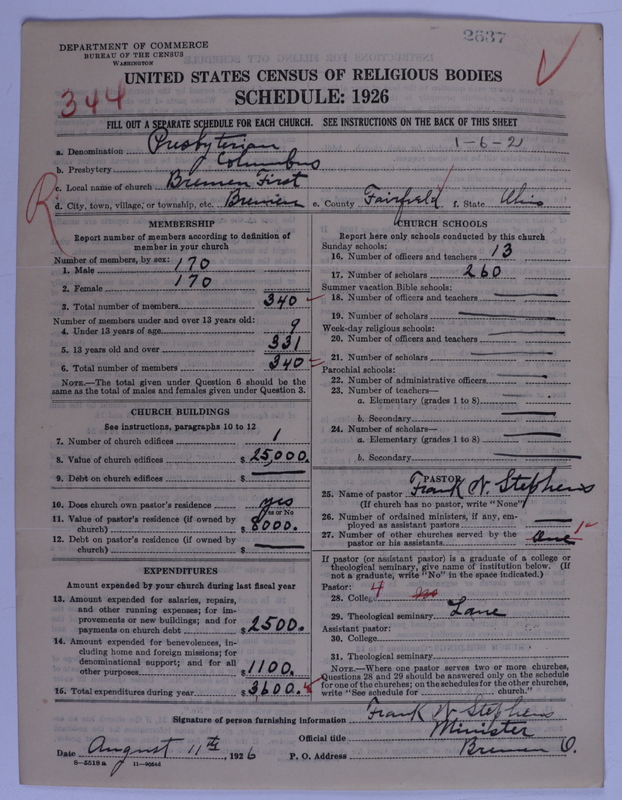 2637
DEPARTMENT OF COMMERCE
BUREAU OF THE CENSUS
WASHINGTON
UNITED STATES CENSUS OF RELIGIOUS BODIES
344
SCHEDULE: 1926
FILL OUT A SEPARATE SCHEDULE FOR EACH CHURCH. SEE INSTRUCTIONS ON THE BACK OF THIS SHEET
a. Denomination Presbyterian 1-6-2
b. Presbytery Columbus
c. Local name of church Bremen First
d. City, town, village, or township, etc. Bremen e. County Fairfield f. State Ohio
R
MEMBERSHIP
Report number of members according to definition of
member in your church
Number of members, by sex:
1. Male 170
2. Female 170
3. Total number of members 340
Number of members under and over 13 years old:
4. Under 13 years of age 9
5. 13 years old and over 331
6. Total number of members 340
NOTE.—The total given under Question 6 should be the
same as the total of males and females given under Question 3.
CHURCH BUILDINGS
See instructions, paragraphs 10 to 12
7. Number of church edifices 1
8. Value of church edifices $25,000.
9. Debt on church edifices $
10. Does church own pastor's residence yes
Yes or No
11. Value of pastor's residence (if owned by
church) $8000.
12. Debt on pastor's residence (if owned by
church) $
EXPENDITURES
Amount expended by your church during last fiscal year
13. Amount expended for salaries, repairs,
and other running expenses; for im-
provements or new buildings; and for
payments on church debt $2500.
14. Amount expended for benevolences, in-
cluding home and foreign missions; for
denominational support; and for all
other purposes $1100.
15. Total expenditures during year $3600.
CHURCH SCHOOLS
Report here only schools conducted by this church
Sunday schools:
16. Number of officers and teachers 13
17. Number of scholars 260
Summer vacation Bible schools:
18. Number of officers and teachers
19. Number of scholars
Week-day religious schools:
20. Number of officers and teachers
21. Number of scholars
Parochial schools:
22. Number of administrative officers
23. Number of teachers—
a. Elementary (grades 1 to 8)
b. Secondary
24. Number of scholars—
a. Elementary (grades 1 to 8)
b. Secondary
PASTOR
25. Name of pastor Frank N. Stephens
(If church has no pastor, write "None")
26. Number of ordained ministers, if any, em-
ployed as assistant pastors
27. Number of other churches served by the
pastor or his assistants one 1
If pastor (or assistant pastor) is a graduate of a college or
theological seminary, give name of institution below. (If
not a graduate, write "No" in the space indicated.)
Pastor:
28. College 4
29. Theological seminary Lane
Assistant pastor:
30. College
31. Theological seminary
NOTE.—Where one pastor serves two or more churches,
Questions 28 and 29 should be answered only on the schedule
for one of the churches; on the schedules for the other churches,
write "See schedule for church."
Signature of person furnishing information Frank N Stephens
Official title Minister
Date August 11th, 1926 P. O. Address Bremen O.
8—5518a 11—90544